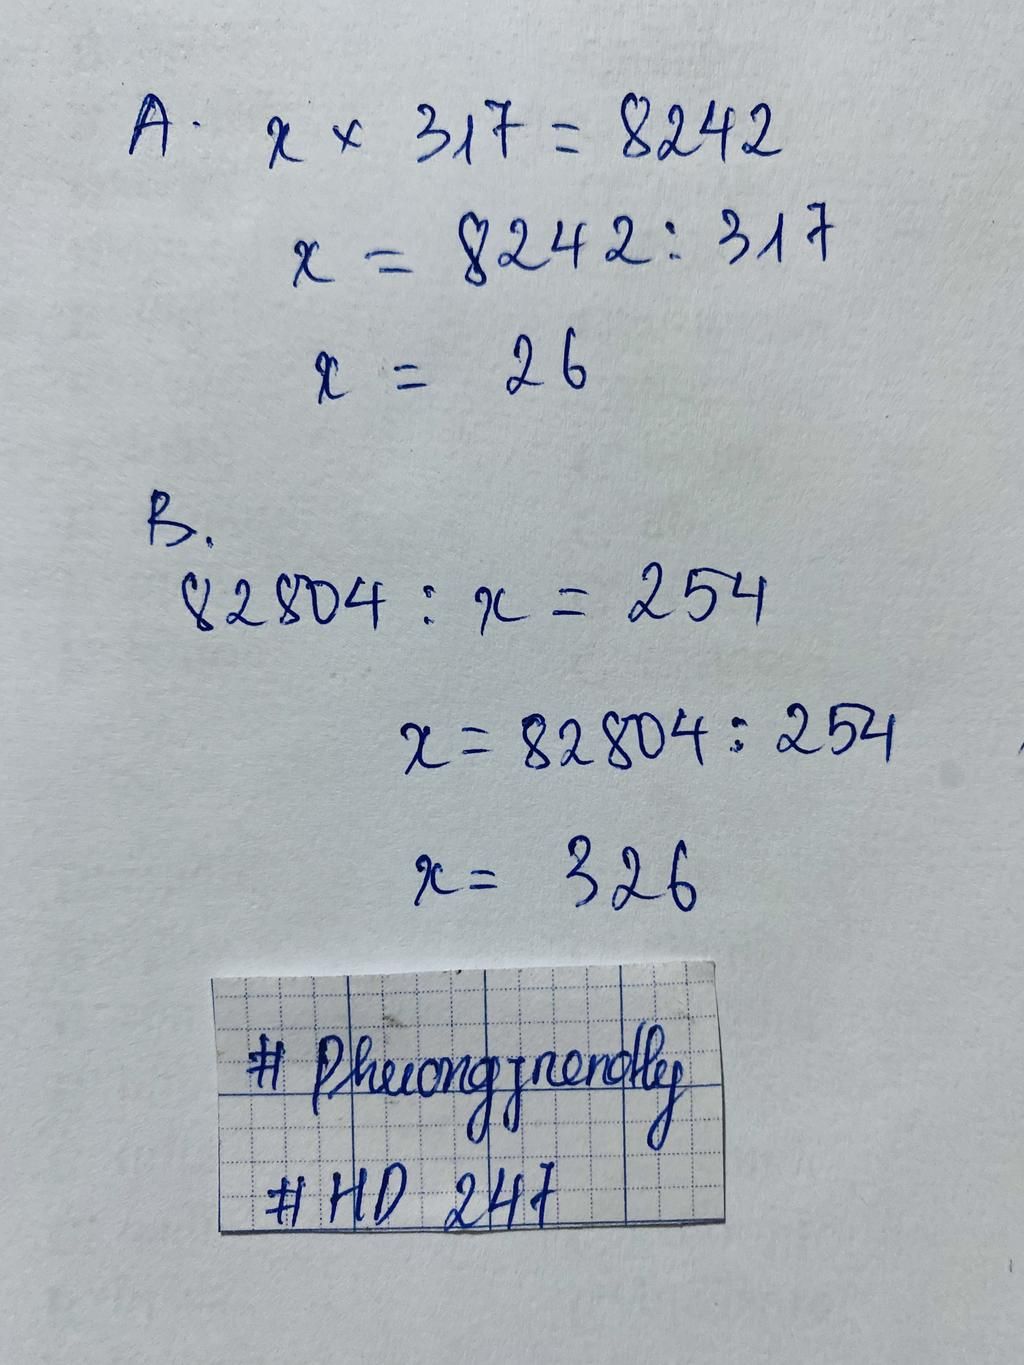 A. x × 317 = 8242
x = 8242 : 317
x = 26
B.
82804 : x = 254
x = 82804 : 254
x = 326
# Phuongfriendly
# HD 247